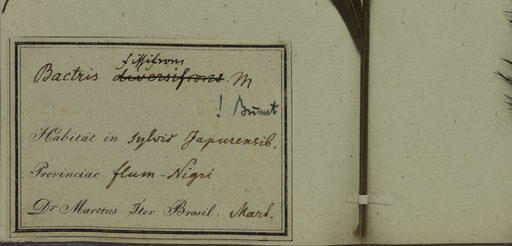 fissifrons
Bactris diversifrons M
! Burret
Habitat in sylvis Japurensib.
Provinciae flum-Nigri
Dr Martius Iter Brasil. Mart.